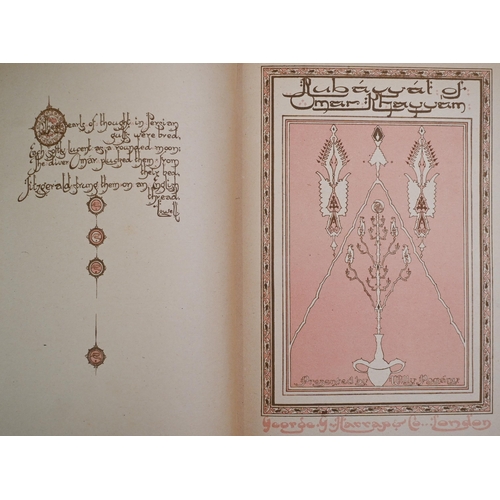 Pearls of thought in Persian
gulfs were bred,
Each softly lucent as a rounded moon;
The diver Omar plucked them from
their bed,
Fitzgerald strung them on an English
thread.
Lowell.
Rubáiyát of
Omar Khayyám
Presented by Willy Pogány
George G. Harrap & Co. London